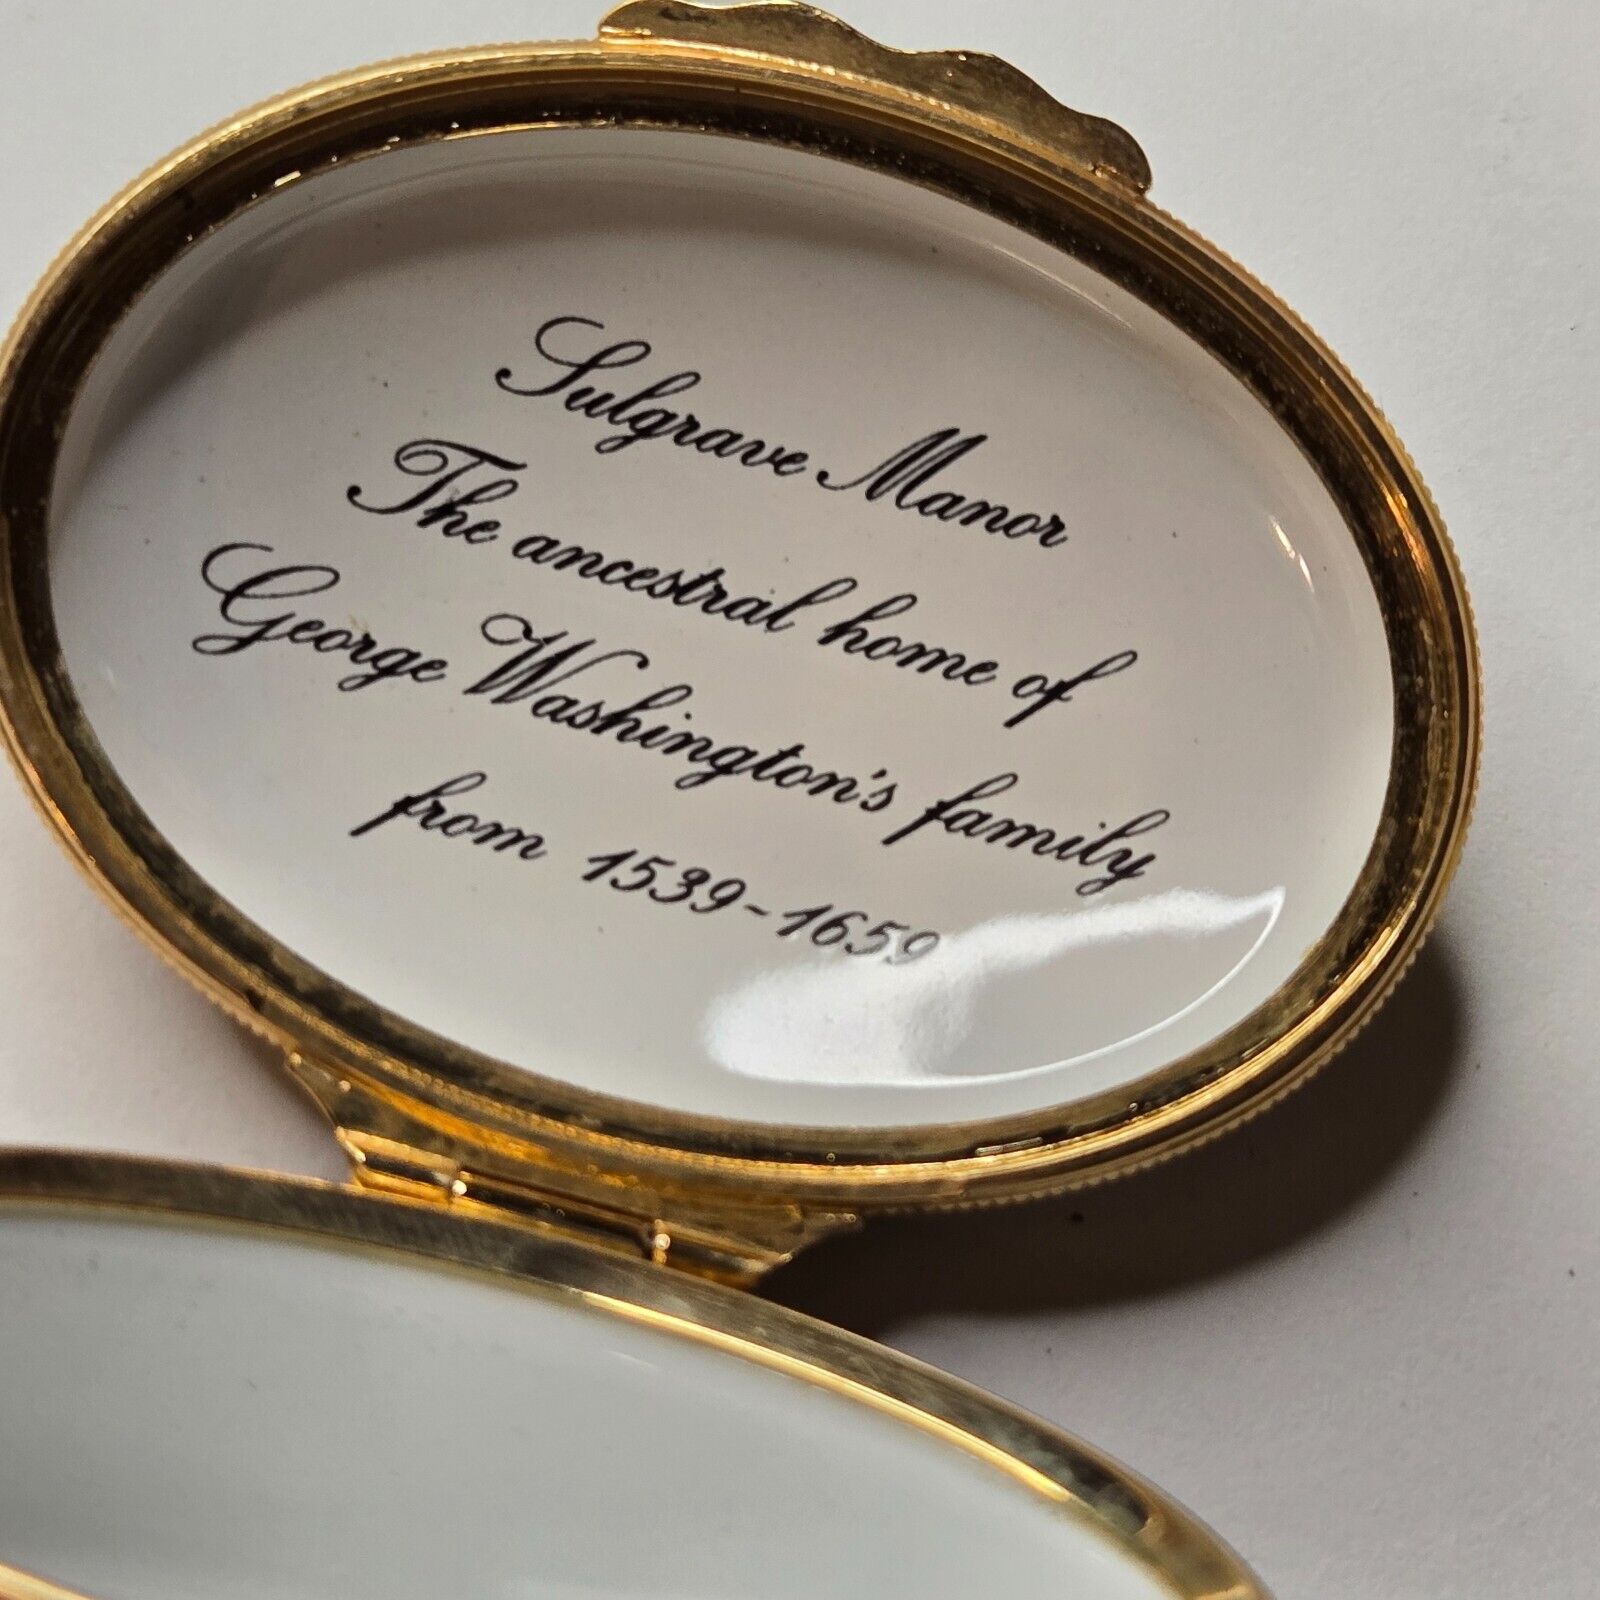 Sulgrave Manor
The ancestral home of
George Washington's family
from 1539-1659